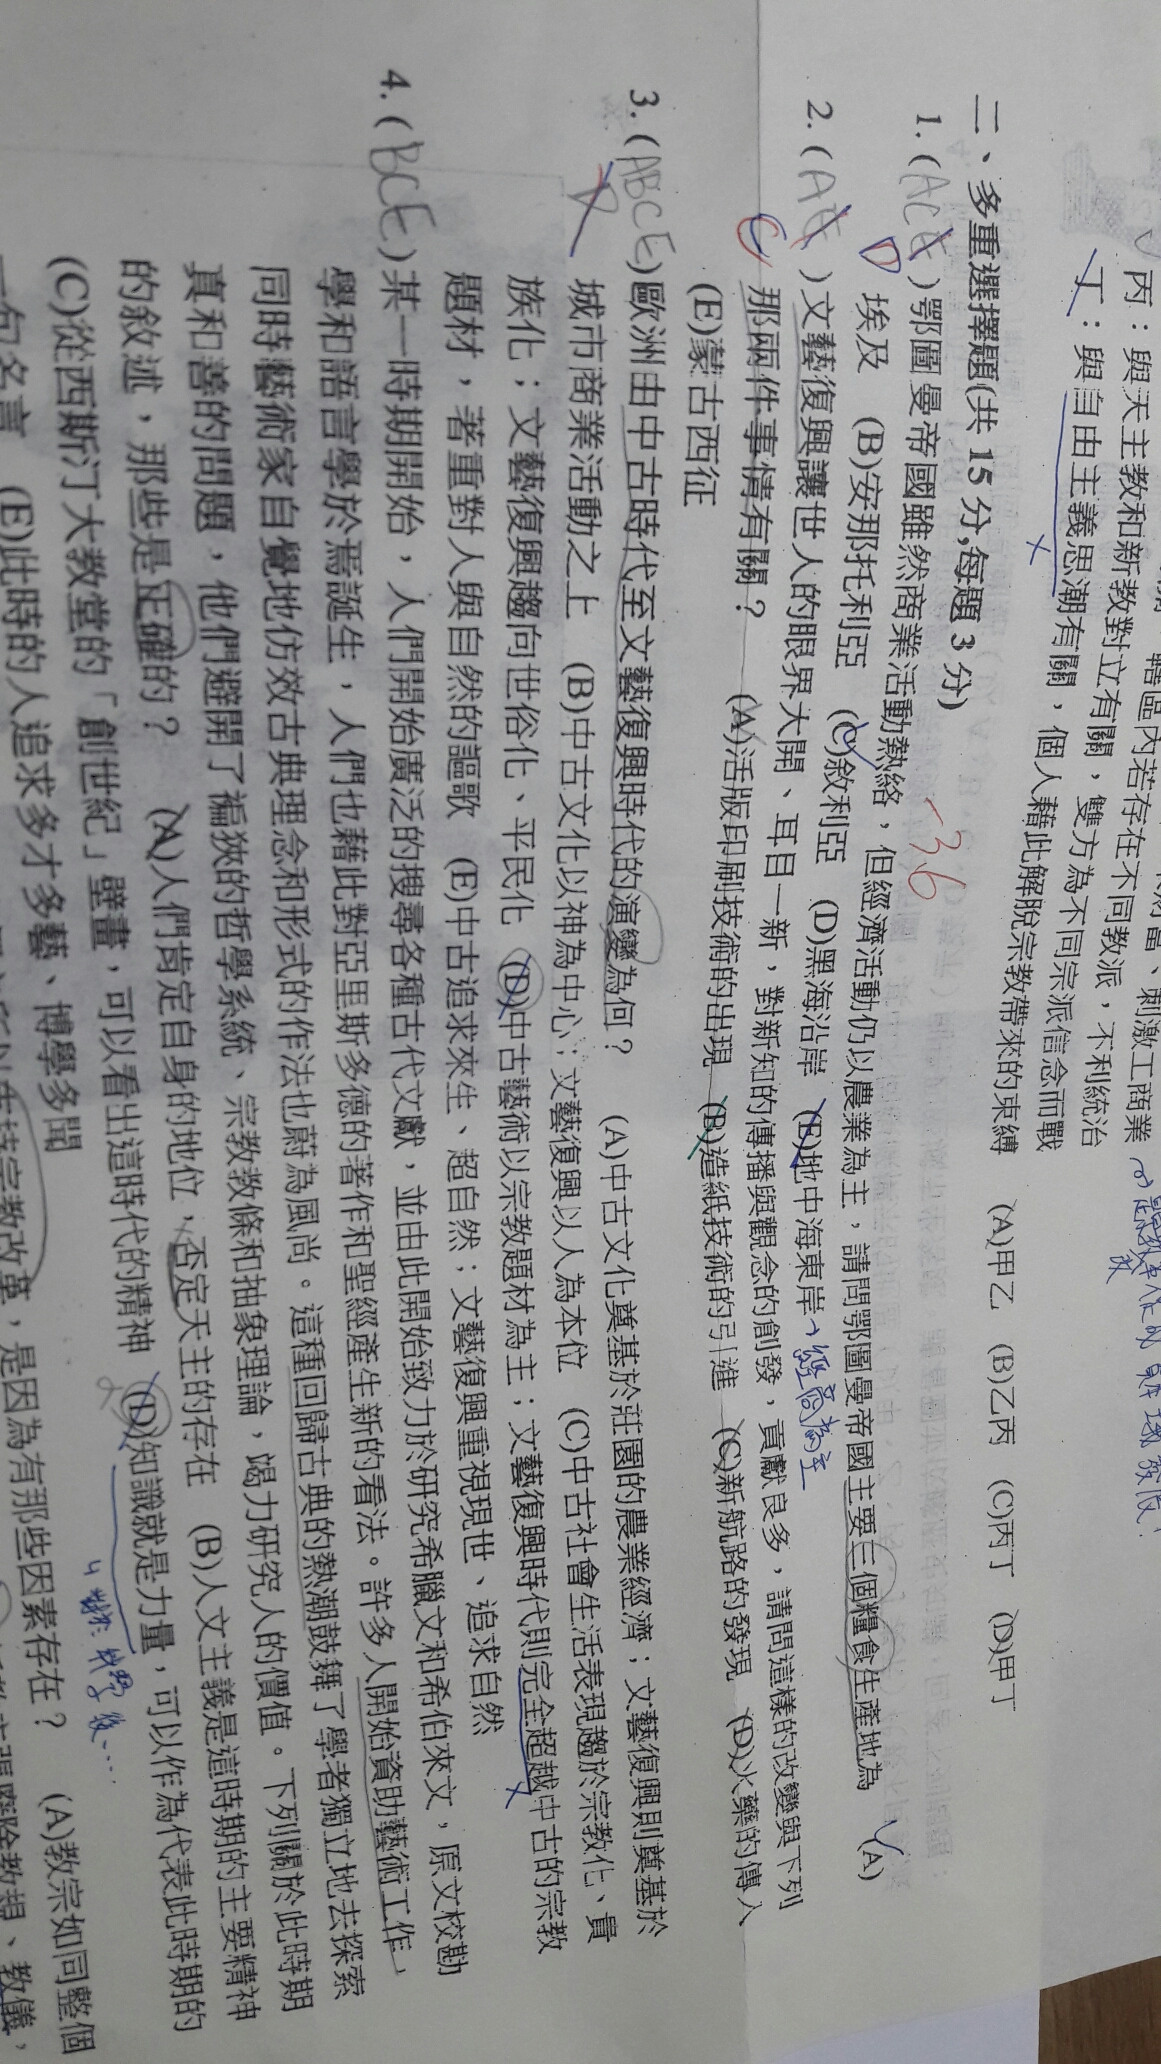 轄區內若存在不同教派，不利統治
丙：與天主教和新教對立有關，雙方為不同宗派信念而戰
丁：與自由主義思潮有關，個人藉此解脫宗教帶來的束縛 (A)甲乙 (B)乙丙 (C)丙丁 (D)甲丁
二、多重選擇題(共 15 分,每題 3 分)
-3.6
1. (ACE)鄂圖曼帝國雖然商業活動熱絡，但經濟活動仍以農業為主，請問鄂圖曼帝國主要三個糧食生產地為 (A)
D 埃及 (B)安那托利亞 (C)敘利亞 (D)黑海沿岸 (E)地中海東岸 經商為主
2. (AE)文藝復興讓世人的眼界大開、耳目一新，對新知的傳播與觀念的創發，貢獻良多，請問這樣的改變與下列
C 那兩件事情有關？ (A)活版印刷技術的出現 (B)造紙技術的引進 (C)新航路的發現 (D)火藥的傳入
(E)蒙古西征
3. (ABCE)歐洲由中古時代至文藝復興時代的演變為何？ (A)中古文化奠基於莊園的農業經濟；文藝復興則奠基於
城市商業活動之上 (B)中古文化以神為中心；文藝復興以人為本位 (C)中古社會生活表現趨於宗教化、貴
族化；文藝復興趨向世俗化、平民化 (D)中古藝術以宗教題材為主；文藝復興時代則完全超越中古的宗教
題材，著重對人與自然的謳歌 (E)中古追求來生、超自然；文藝復興重視現世、追求自然
4. (BCE)某一時期開始，人們開始廣泛的搜尋各種古代文獻，並由此開始致力於研究希臘文和希伯來文，原文校勘
學和語言學於焉誕生，人們也藉此對亞里斯多德的著作和聖經產生新的看法。許多人開始資助藝術工作，
同時藝術家自覺地仿效古典理念和形式的作法也蔚為風尚。這種回歸古典的熱潮鼓舞了學者獨立地去探索
真和善的問題，他們避開了褊狹的哲學系統、宗教教條和抽象理論，竭力研究人的價值。下列關於此時期
的敘述，那些是正確的？ (A)人們肯定自身的地位，否定天主的存在 (B)人文主義是這時期的主要精神
(C)從西斯汀大教堂的「創世紀」壁畫，可以看出這時代的精神 (D)知識就是力量，可以作為代表此時期的
一句名言 (E)此時的人追求多才多藝、博學多聞
是因為有那些因素存在？ (A)教宗如同整個